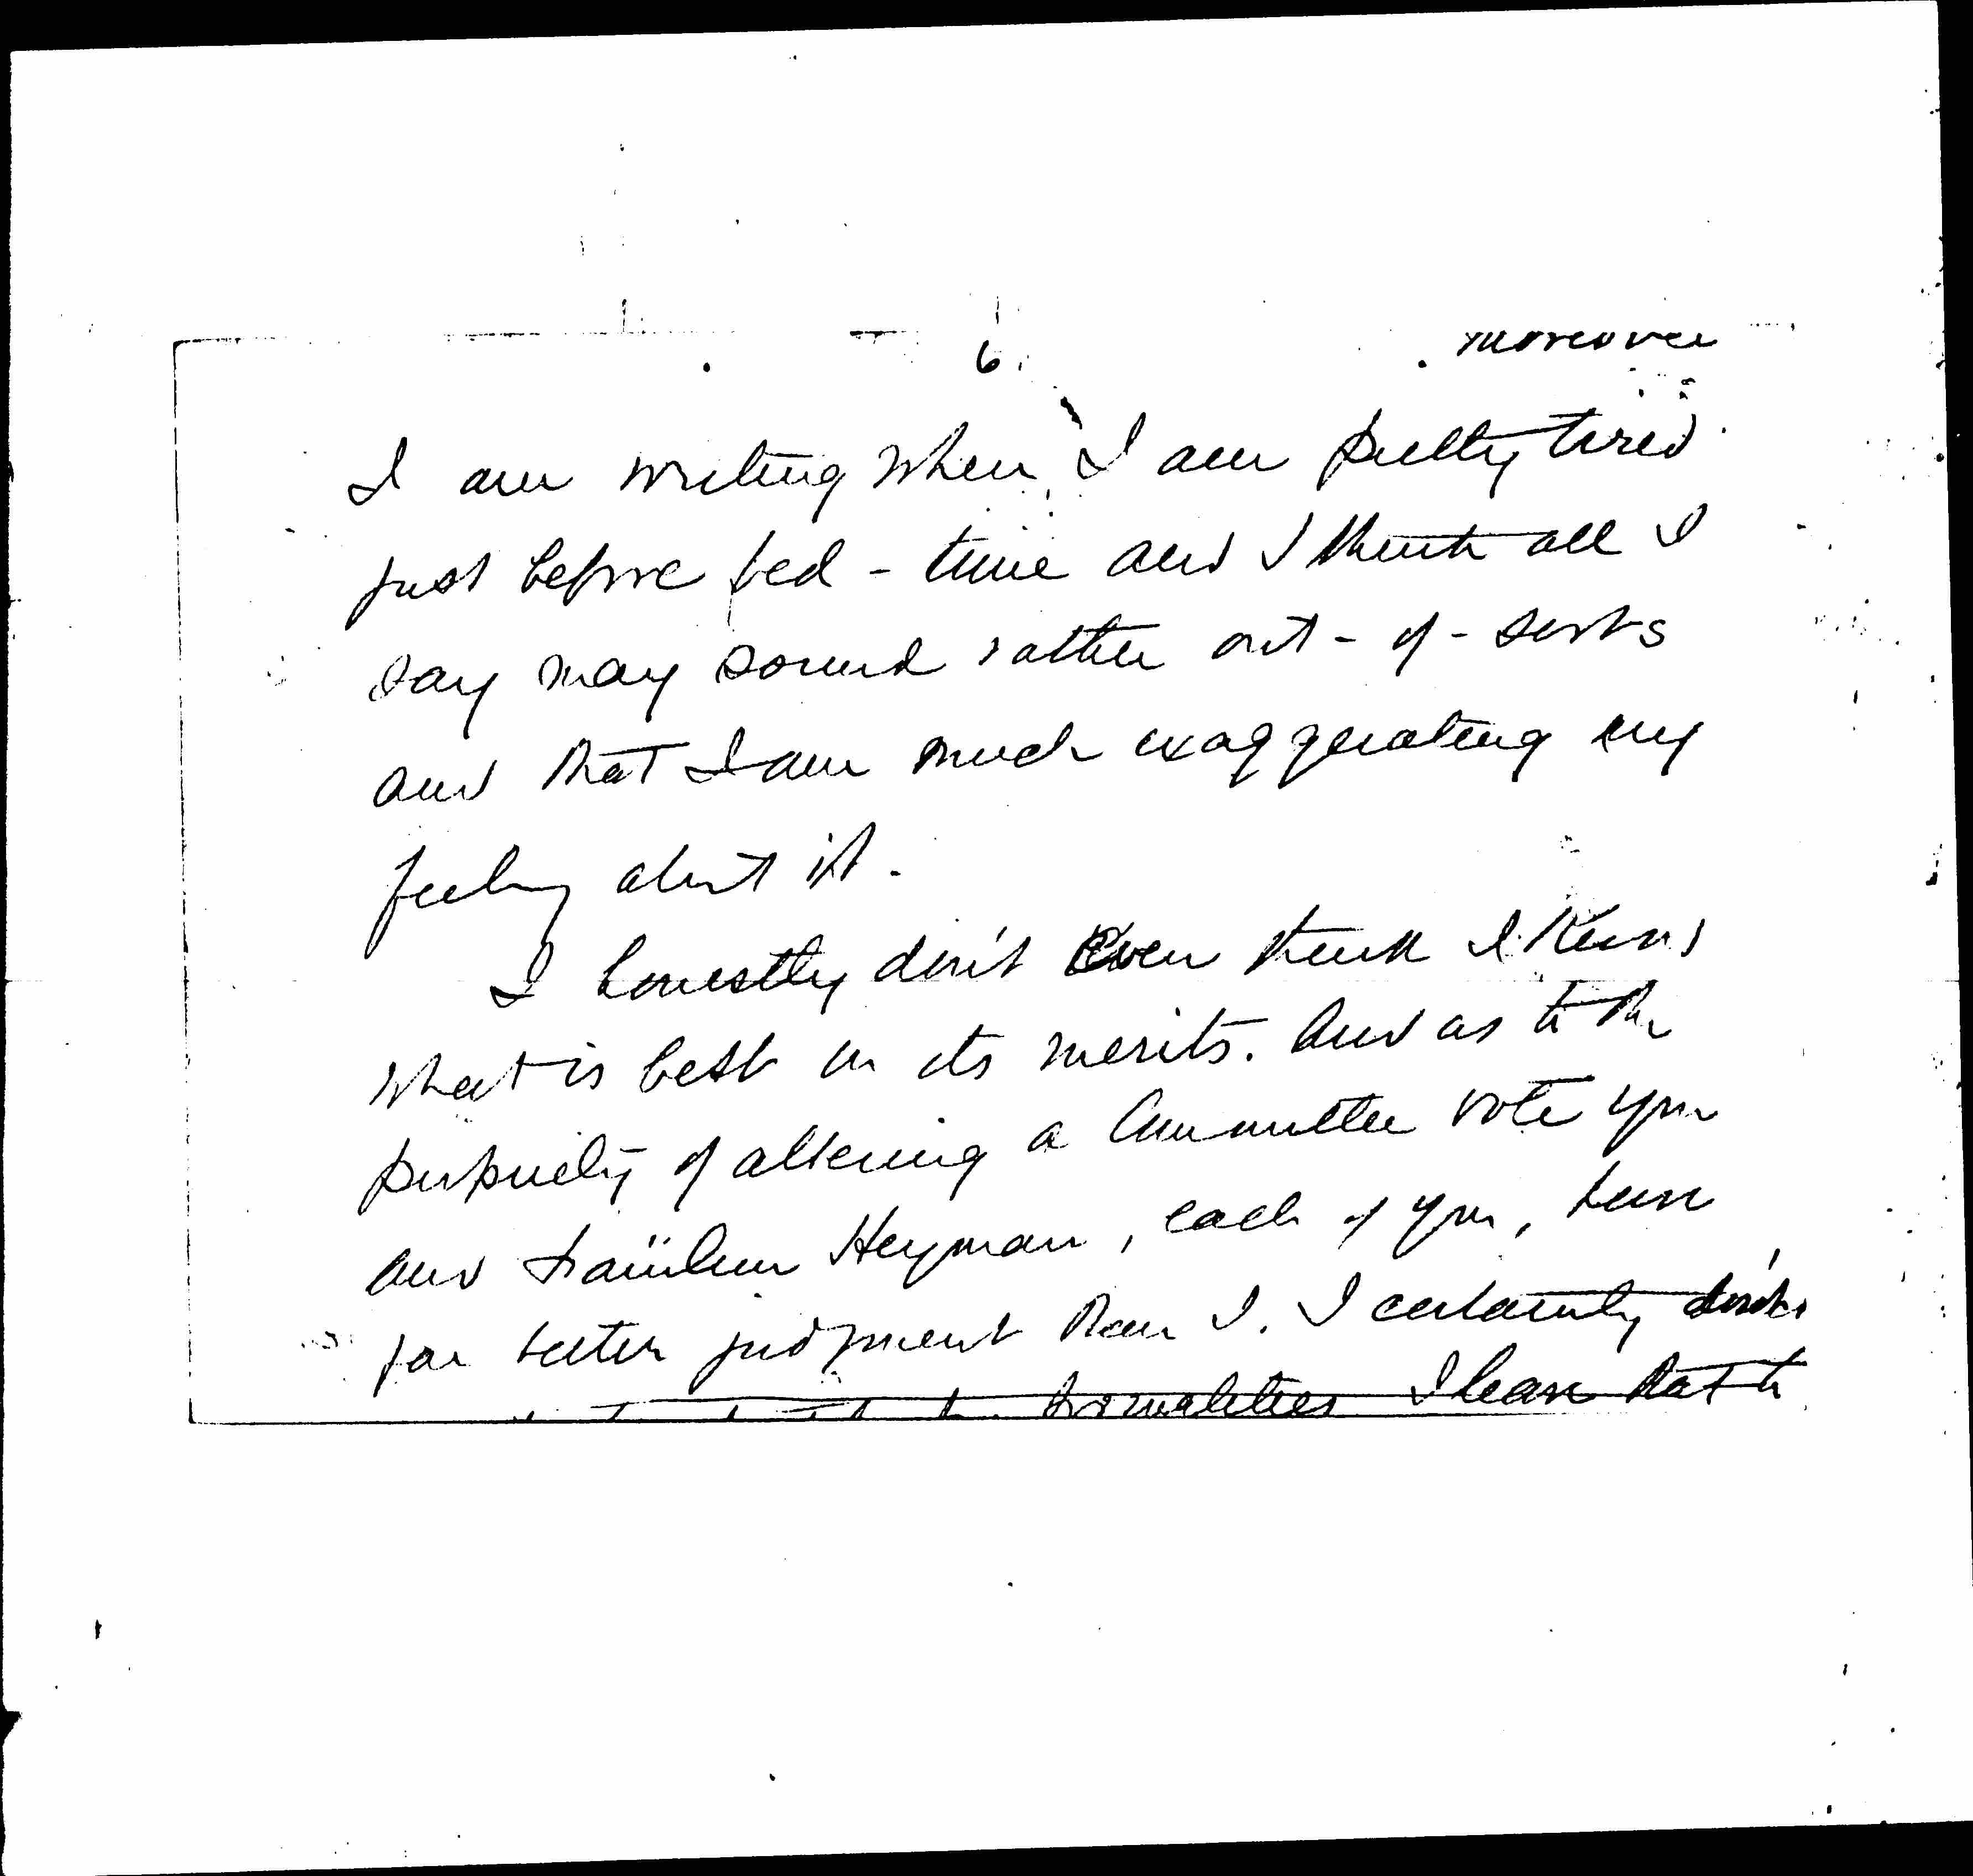 6.
moreover
I am writing when I am pretty tired
just before bed - time and I think all I
say may sound rather out - of - sorts
and that I am much exaggerating my
feeling about it.
I honestly don't even think I know
what is best on its merits. And as to the
propriety of altering a Committee vote you
and Fraülein Heyman, each of you, have
far better judgment than I. I certainly don't
formalities I leave that to